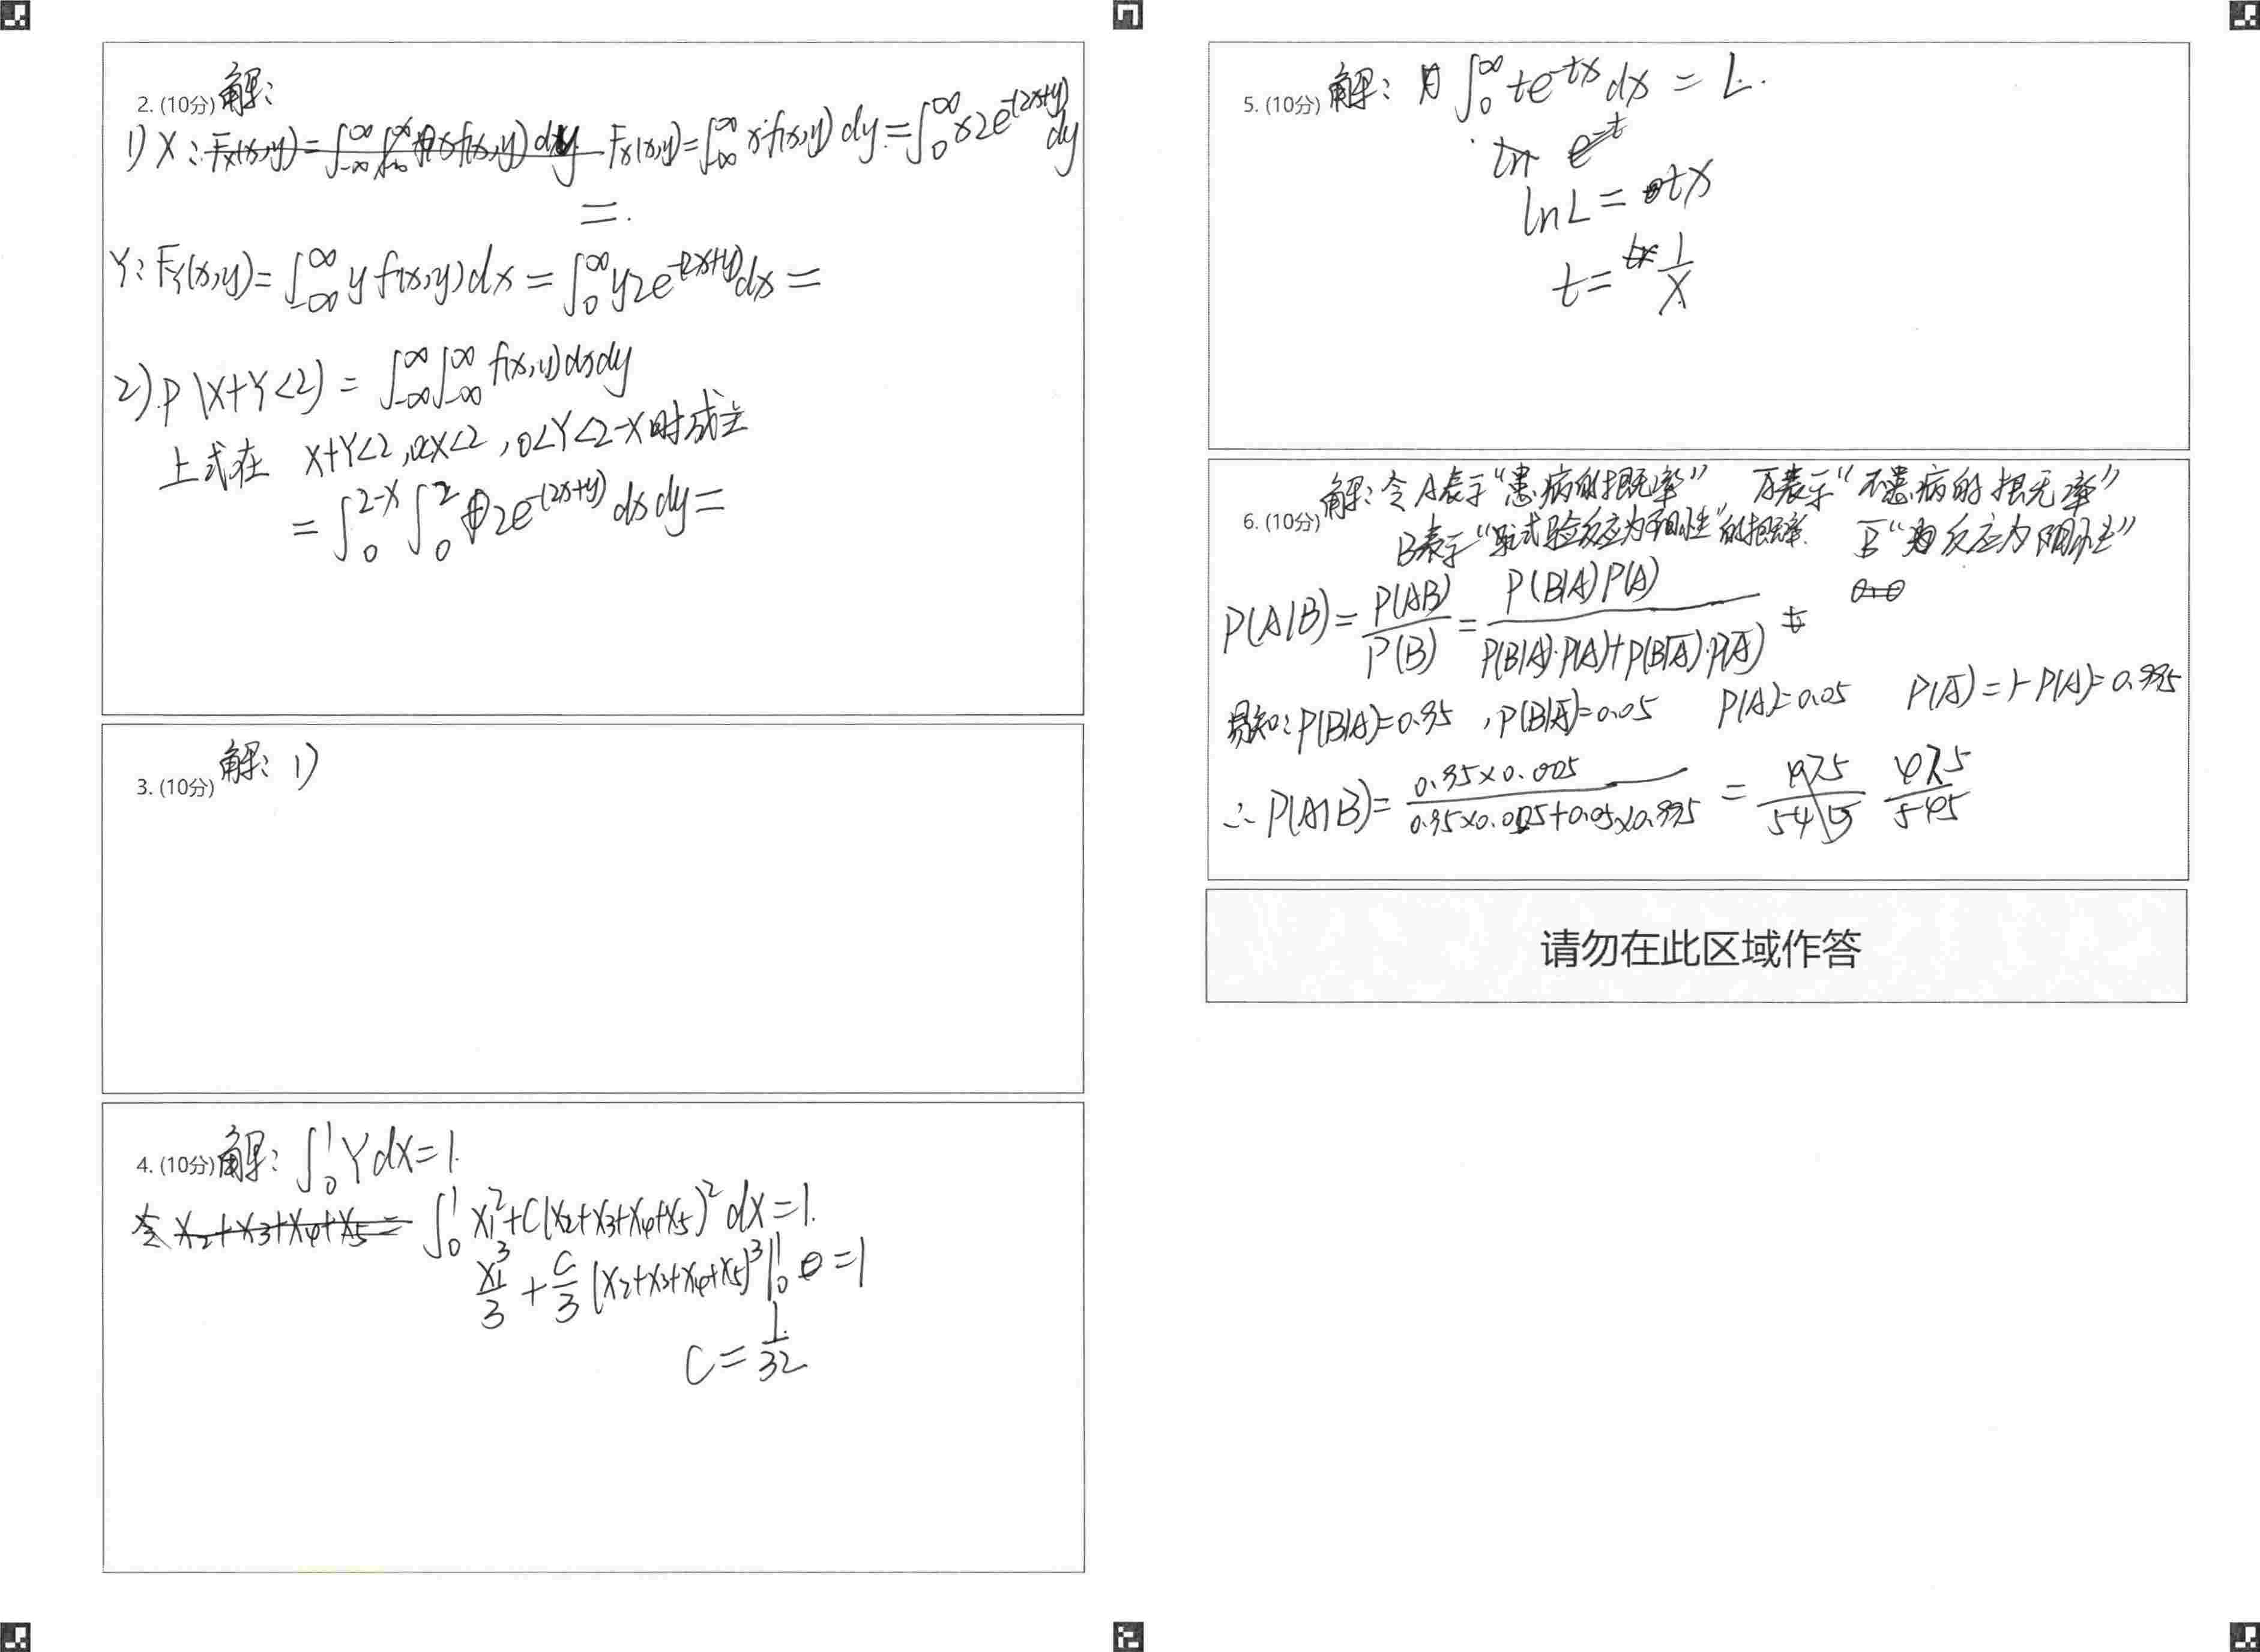 2. (10分) 解:
1) X: F_X(x,y)=∫_{-∞}^{∞} x·f(x,y) dy=∫_0^∞ x2e^{-(2x+y)} dy
=.
Y: F_Y(x,y)=∫_{-∞}^{∞} y f(x,y)dx=∫_0^∞ y2e^{-(2x+y)}dx=
2). P(X+Y<2)=∫_{-∞}^{∞}∫_{-∞}^{∞} f(x,y)dxdy
上式在 X+Y<2, 0<X<2, 0<Y<2-X时成立
=∫_0^{2-x}∫_0^2 2e^{-(2x+y)} dxdy=
3. (10分) 解: 1)
4. (10分) 解: ∫_0^1 Y dX=1.
令 X₂+X₃+X₄+X₅= ∫_0^1 X₁²+C(X₂+X₃+X₄+X₅)² dX=1.
X₁³/3+C/3(X₂+X₃+X₄+X₅)³|_0^1=1
C=1/32
5. (10分) 解: ∫_0^∞ te^{-tx} dx=L.
e^{-t}
lnL=tX
t=1/X
6. (10分) 解: 令A表示“患病的概率” Ā表示“不患病的概率”
B表示“试验反应为阳性”的概率. B̄“为反应为阴性”
P(A|B)=P(AB)/P(B)=P(B|A)P(A)/(P(B|A)·P(A)+P(B|Ā)·P(Ā))
易知: P(B|A)=0.95, P(B|Ā)=0.05 P(A)=0.05 P(Ā)=1-P(A)=0.995
∴P(A|B)=0.95×0.005/(0.95×0.005+0.05×0.995)=475/545
请勿在此区域作答